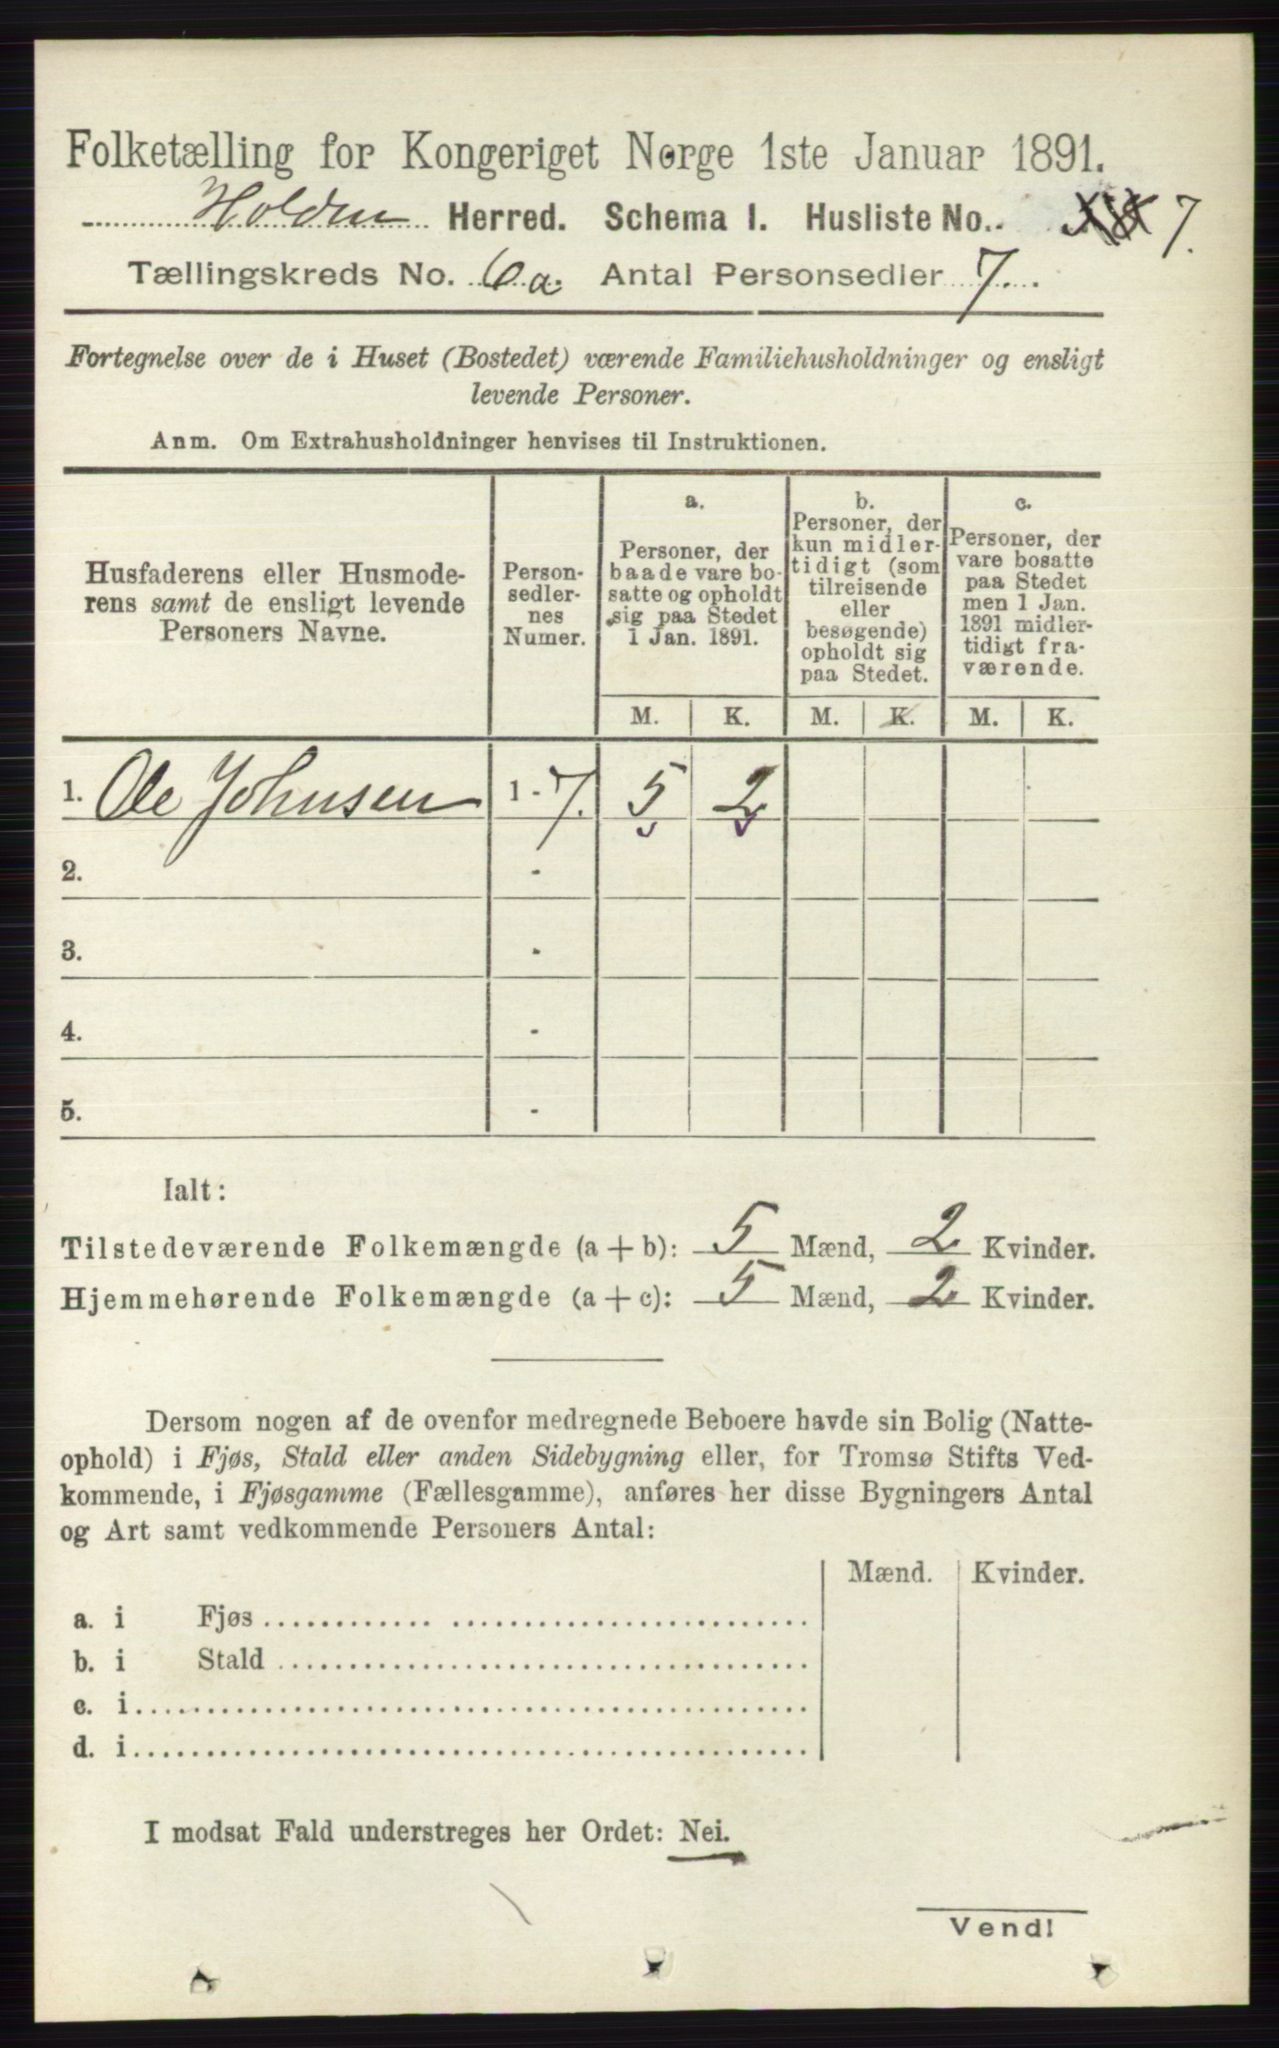 Folketælling for Kongeriget Norge 1ste Januar 1891.
Holden Herred. Schema I. Husliste No. 7.
Tællingskreds No. 6a. Antal Personsedler 7.
Fortegnelse over de i Huset (Bostedet) værende Familiehusholdninger og ensligt
levende Personer.
Anm. Om Extrahusholdninger henvises til Instruktionen.
Husfaderens eller Husmode-
rens samt de ensligt levende
Personers Navne.
Person-
sedler-
nes
Numer.
a.
Personer, der
baade vare bo-
satte og opholdt
sig paa Stedet
1 Jan. 1891.
b.
Personer, der
kun midler-
tidigt (som
tilreisende
eller
besøgende)
opholdt sig
paa Stedet.
c.
Personer, der
vare bosatte
paa Stedet
men 1 Jan.
1891 midler-
tidigt fra-
værende.
M. K. M. K. M. K.
1. Ole Johnsen 1 - 7. 5 2
2. -
3. -
4. -
5. -
Ialt:
Tilstedeværende Folkemængde (a + b): 5 Mænd, 2 Kvinder.
Hjemmehørende Folkemængde (a + c): 5 Mænd, 2 Kvinder.
Dersom nogen af de ovenfor medregnede Beboere havde sin Bolig (Natte-
ophold) i Fjøs, Stald eller anden Sidebygning eller, for Tromsø Stifts Ved-
kommende, i Fjøsgamme (Fællesgamme), anføres her disse Bygningers Antal
og Art samt vedkommende Personers Antal:
Mænd. Kvinder.
a. i Fjøs
b. i Stald
c. i
d. i
I modsat Fald understreges her Ordet: Nei.
Vend!